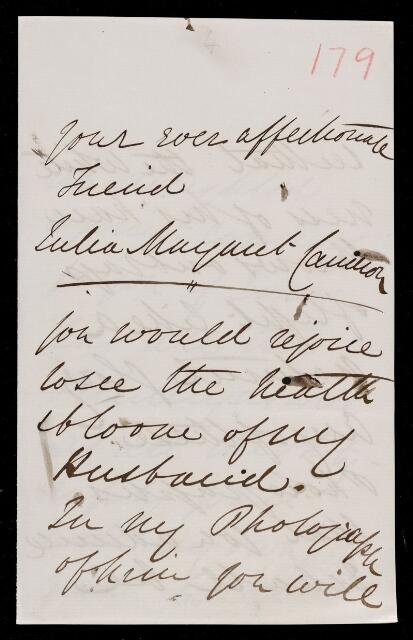 179
your ever affectionate
Friend
Julia Margaret Cameron
you would rejoice
to see the health
& bloom of my
Husband.
In my Photograph
of him you will